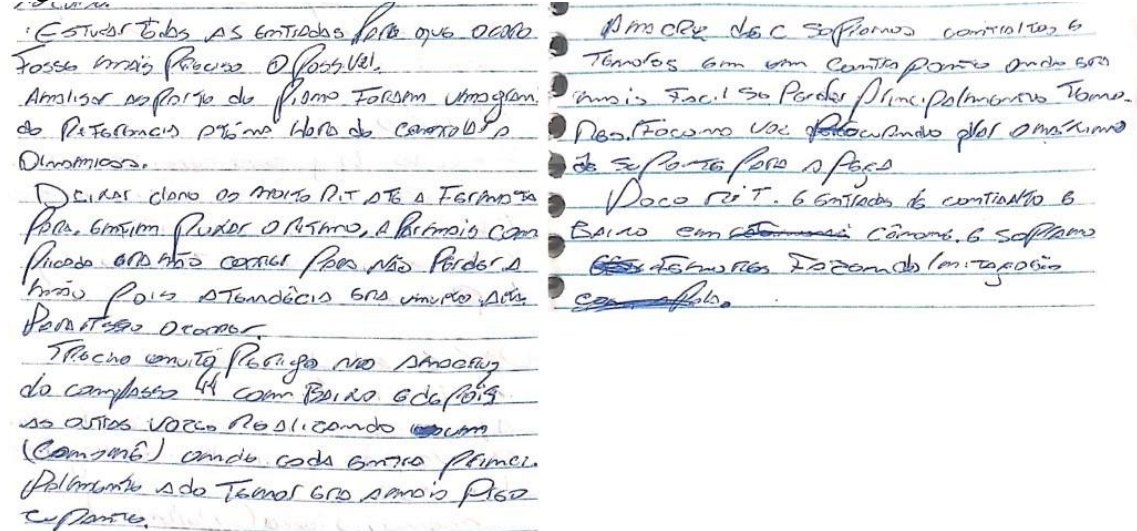 : Estudar todas as entradas para que ocoro
fosse mais preciso o possvel.
Analisar as parte do piano foram umagran
de referencia até na hora de controlar a
Dinamicas.
Deixar claro os moito Rit até a fermata
para, emtim puxar o ritmo, a par mais com
plicada era não correr para não perder a
mão pois a tendêcia era muito alta
para isso ocorrer.
Trecho muito perigo no anacruz
do compasso 44 com Baixo e depois
as outras vozes realizando um
(canoné) onde cada entra primci.
palmente a do Tenor era a mais preo
cupante.
Anacruz de C sopranos contraltos e
Tenores em um contra ponto onde era
mais facil se perder principalmente Teno-
res. Foco na voz procurando dar o máximo
de suporte para a peça
Poco rit. e entradas de contralto e
Baixo em cânone. e soprano
tenores fazendo imitação